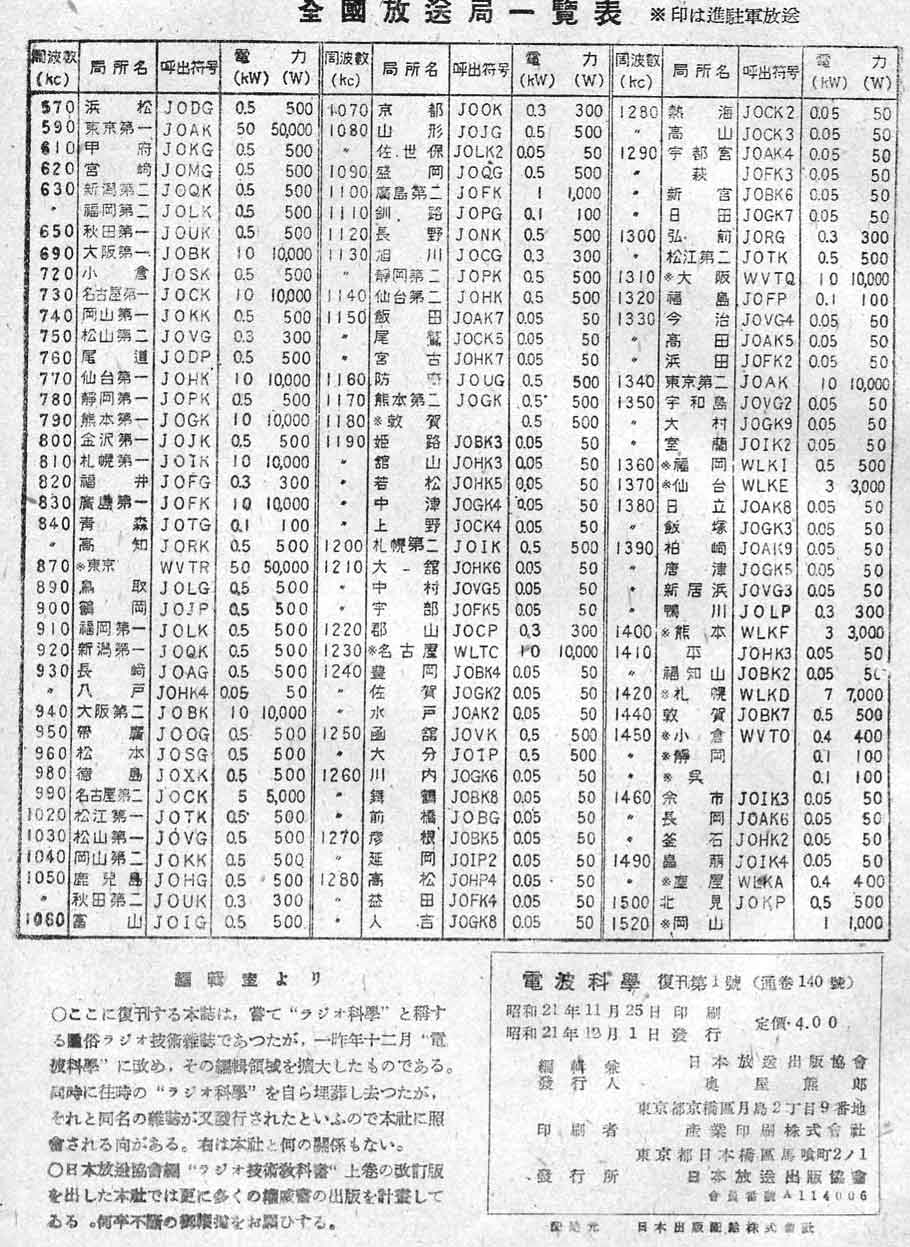 全國放送局一覽表 ※印は進駐軍放送
周波數(kc) 局所名 呼出符号 電力(kW) (W) 周波數(kc) 局所名 呼出符号 電力(kW) (W) 周波數(kc) 局所名 呼出符号 電力(kW) (W)
570 浜松 JODG 0.5 500 1070 京都 JOOK 0.3 300 1280 熱海 JOCK2 0.05 50
590 東京第一 JOAK 50 50,000 1080 山形 JOJG 0.5 500 〃 高山 JOCK3 0.05 50
610 甲府 JOKG 0.5 500 〃 佐世保 JOLK2 0.05 50 1290 宇都宮 JOAK4 0.05 50
620 宮崎 JOMG 0.5 500 1090 盛岡 JOQG 0.5 500 〃 萩 JOFK3 0.05 50
630 新潟第二 JOQK 0.5 500 1100 廣島第二 JOFK 1 1,000 〃 新宮 JOBK6 0.05 50
〃 福岡第二 JOLK 0.5 500 1110 釧路 JOPG 0.1 100 〃 日田 JOGK7 0.05 50
650 秋田第一 JOUK 0.5 500 1120 長野 JONK 0.5 500 1300 弘前 JORG 0.3 300
690 大阪第一 JOBK 10 10,000 1130 旭川 JOCG 0.3 300 松江第二 JOTK 0.5 500
720 小倉 JOSK 0.5 500 〃 靜岡第二 JOPK 0.5 500 1310 ※大阪 WVTQ 10 10,000
730 名古屋第一 JOCK 10 10,000 1140 仙台第二 JOHK 0.5 500 1320 福島 JOFP 0.1 100
740 岡山第一 JOKK 0.5 500 1150 飯田 JOAK7 0.05 50 1330 今治 JOVG4 0.05 50
750 松山第二 JOVG 0.3 300 〃 尾鷲 JOCK5 0.05 50 〃 高田 JOAK5 0.05 50
760 尾道 JODP 0.5 500 〃 宮古 JOHK7 0.05 50 〃 浜田 JOFK2 0.05 50
770 仙台第一 JOHK 10 10,000 1160 防府 JOUG 0.5 500 1340 東京第二 JOAK 10 10,000
780 靜岡第一 JOPK 0.5 500 1170 熊本第二 JOGK 0.5 500 1350 宇和島 JOVG2 0.05 50
790 熊本第一 JOGK 10 10,000 1180 ※敦賀 0.5 500 〃 大村 JOGK9 0.05 50
800 金沢第一 JOJK 0.5 500 1190 姫路 JOBK3 0.05 50 〃 室蘭 JOIK2 0.05 50
810 札幌第一 JOIK 10 10,000 〃 館山 JOHK3 0.05 50 1360 ※福岡 WLKI 0.5 500
820 福井 JOFG 0.3 300 〃 若松 JOHK5 0.05 50 1370 ※仙台 WLKE 3 3,000
830 廣島第一 JOFK 10 10,000 〃 中津 JOGK4 0.05 50 1380 日立 JOAK8 0.05 50
840 青森 JOTG 0.1 100 〃 上野 JOCK4 0.05 50 〃 飯塚 JOGK3 0.05 50
〃 高知 JORK 0.5 500 1200 札幌第二 JOIK 0.5 500 1390 柏崎 JOAK9 0.05 50
870 ※東京 WVTR 50 50,000 1210 大舘 JOHK6 0.05 50 〃 唐津 JOGK5 0.05 50
890 鳥取 JOLG 0.5 500 〃 中村 JOVG5 0.05 50 〃 新居浜 JOVG3 0.05 50
900 鶴岡 JOJP 0.5 500 〃 宇部 JOFK5 0.05 50 〃 鴨川 JOLP 0.3 300
910 福岡第一 JOLK 0.5 500 1220 郡山 JOCP 0.3 300 1400 ※熊本 WLKF 3 3,000
920 新潟第一 JOQK 0.5 500 1230 ※名古屋 WLTC 10 10,000 1410 平 JOHK3 0.05 50
930 長崎 JOAG 0.5 500 1240 豊岡 JOBK4 0.05 50 〃 福知山 JOBK2 0.05 50
〃 八戸 JOHK4 0.05 50 〃 佐賀 JOGK2 0.05 50 1420 ※札幌 WLKD 7 7,000
940 大阪第二 JOBK 10 10,000 〃 水戸 JOAK2 0.05 50 1440 敦賀 JOBK7 0.5 500
950 帶廣 JOOG 0.5 500 1250 函舘 JOVK 0.5 500 1450 ※小倉 WVTO 0.4 400
960 松本 JOSG 0.5 500 〃 大分 JOIP 0.5 500 〃 ※靜岡 0.1 100
980 德島 JOXK 0.5 500 1260 川内 JOGK6 0.05 50 〃 ※呉 0.1 100
990 名古屋第二 JOCK 5 5,000 〃 舞鶴 JOBK8 0.05 50 1460 余市 JOIK3 0.05 50
1020 松江第一 JOTK 0.5 500 〃 前橋 JOBG 0.05 50 〃 長岡 JOAK6 0.05 50
1030 松山第一 JOVG 0.5 500 1270 彦根 JOBK5 0.05 50 〃 釜石 JOHK2 0.05 50
1040 岡山第二 JOKK 0.5 500 〃 延岡 JOIP2 0.05 50 1490 留萠 JOIK4 0.05 50
1050 鹿兒島 JOHG 0.5 500 1280 高松 JOHP4 0.05 50 〃 ※鹿屋 WLKA 0.4 400
〃 秋田第二 JOUK 0.3 300 〃 益田 JOFK4 0.05 50 1500 北見 JOKP 0.5 500
1060 富山 JOIG 0.5 500 〃 人吉 JOGK8 0.05 50 1520 ※岡山 1 1,000
編輯室より
〇ここに復刊する本誌は，嘗て“ラジオ科學”と稱す
る通俗ラジオ技術雜誌であつたが，一昨年十二月“電
波科學”に改め，その編輯領域を擴大したものである。
同時に往時の“ラジオ科學”を自ら埋葬し去つたが，
それと同名の雜誌が又發行されたといふので本社に照
會される向がある。右は本社と何の關係もない。
〇日本放送協會編“ラジオ技術敎科書”上巻の改訂版
を出した本社では更に多くの書の出版を計畫して
ゐる。何卒不斷の御をお願ひする。
電波科學 復刊第1號 (通卷140號)
昭和21年11月25日印刷
昭和21年12月1日發行 定價・4.00
編輯兼發行人 日本放送出版協會
奥屋熊郎
東京都京橋區月島2丁目9番地
印刷者 産業印刷株式會社
東京都日本橋區馬喰町2ノ1
發行所 日本放送出版協會
會員番號A114006
配給元 日本出版配給株式會社